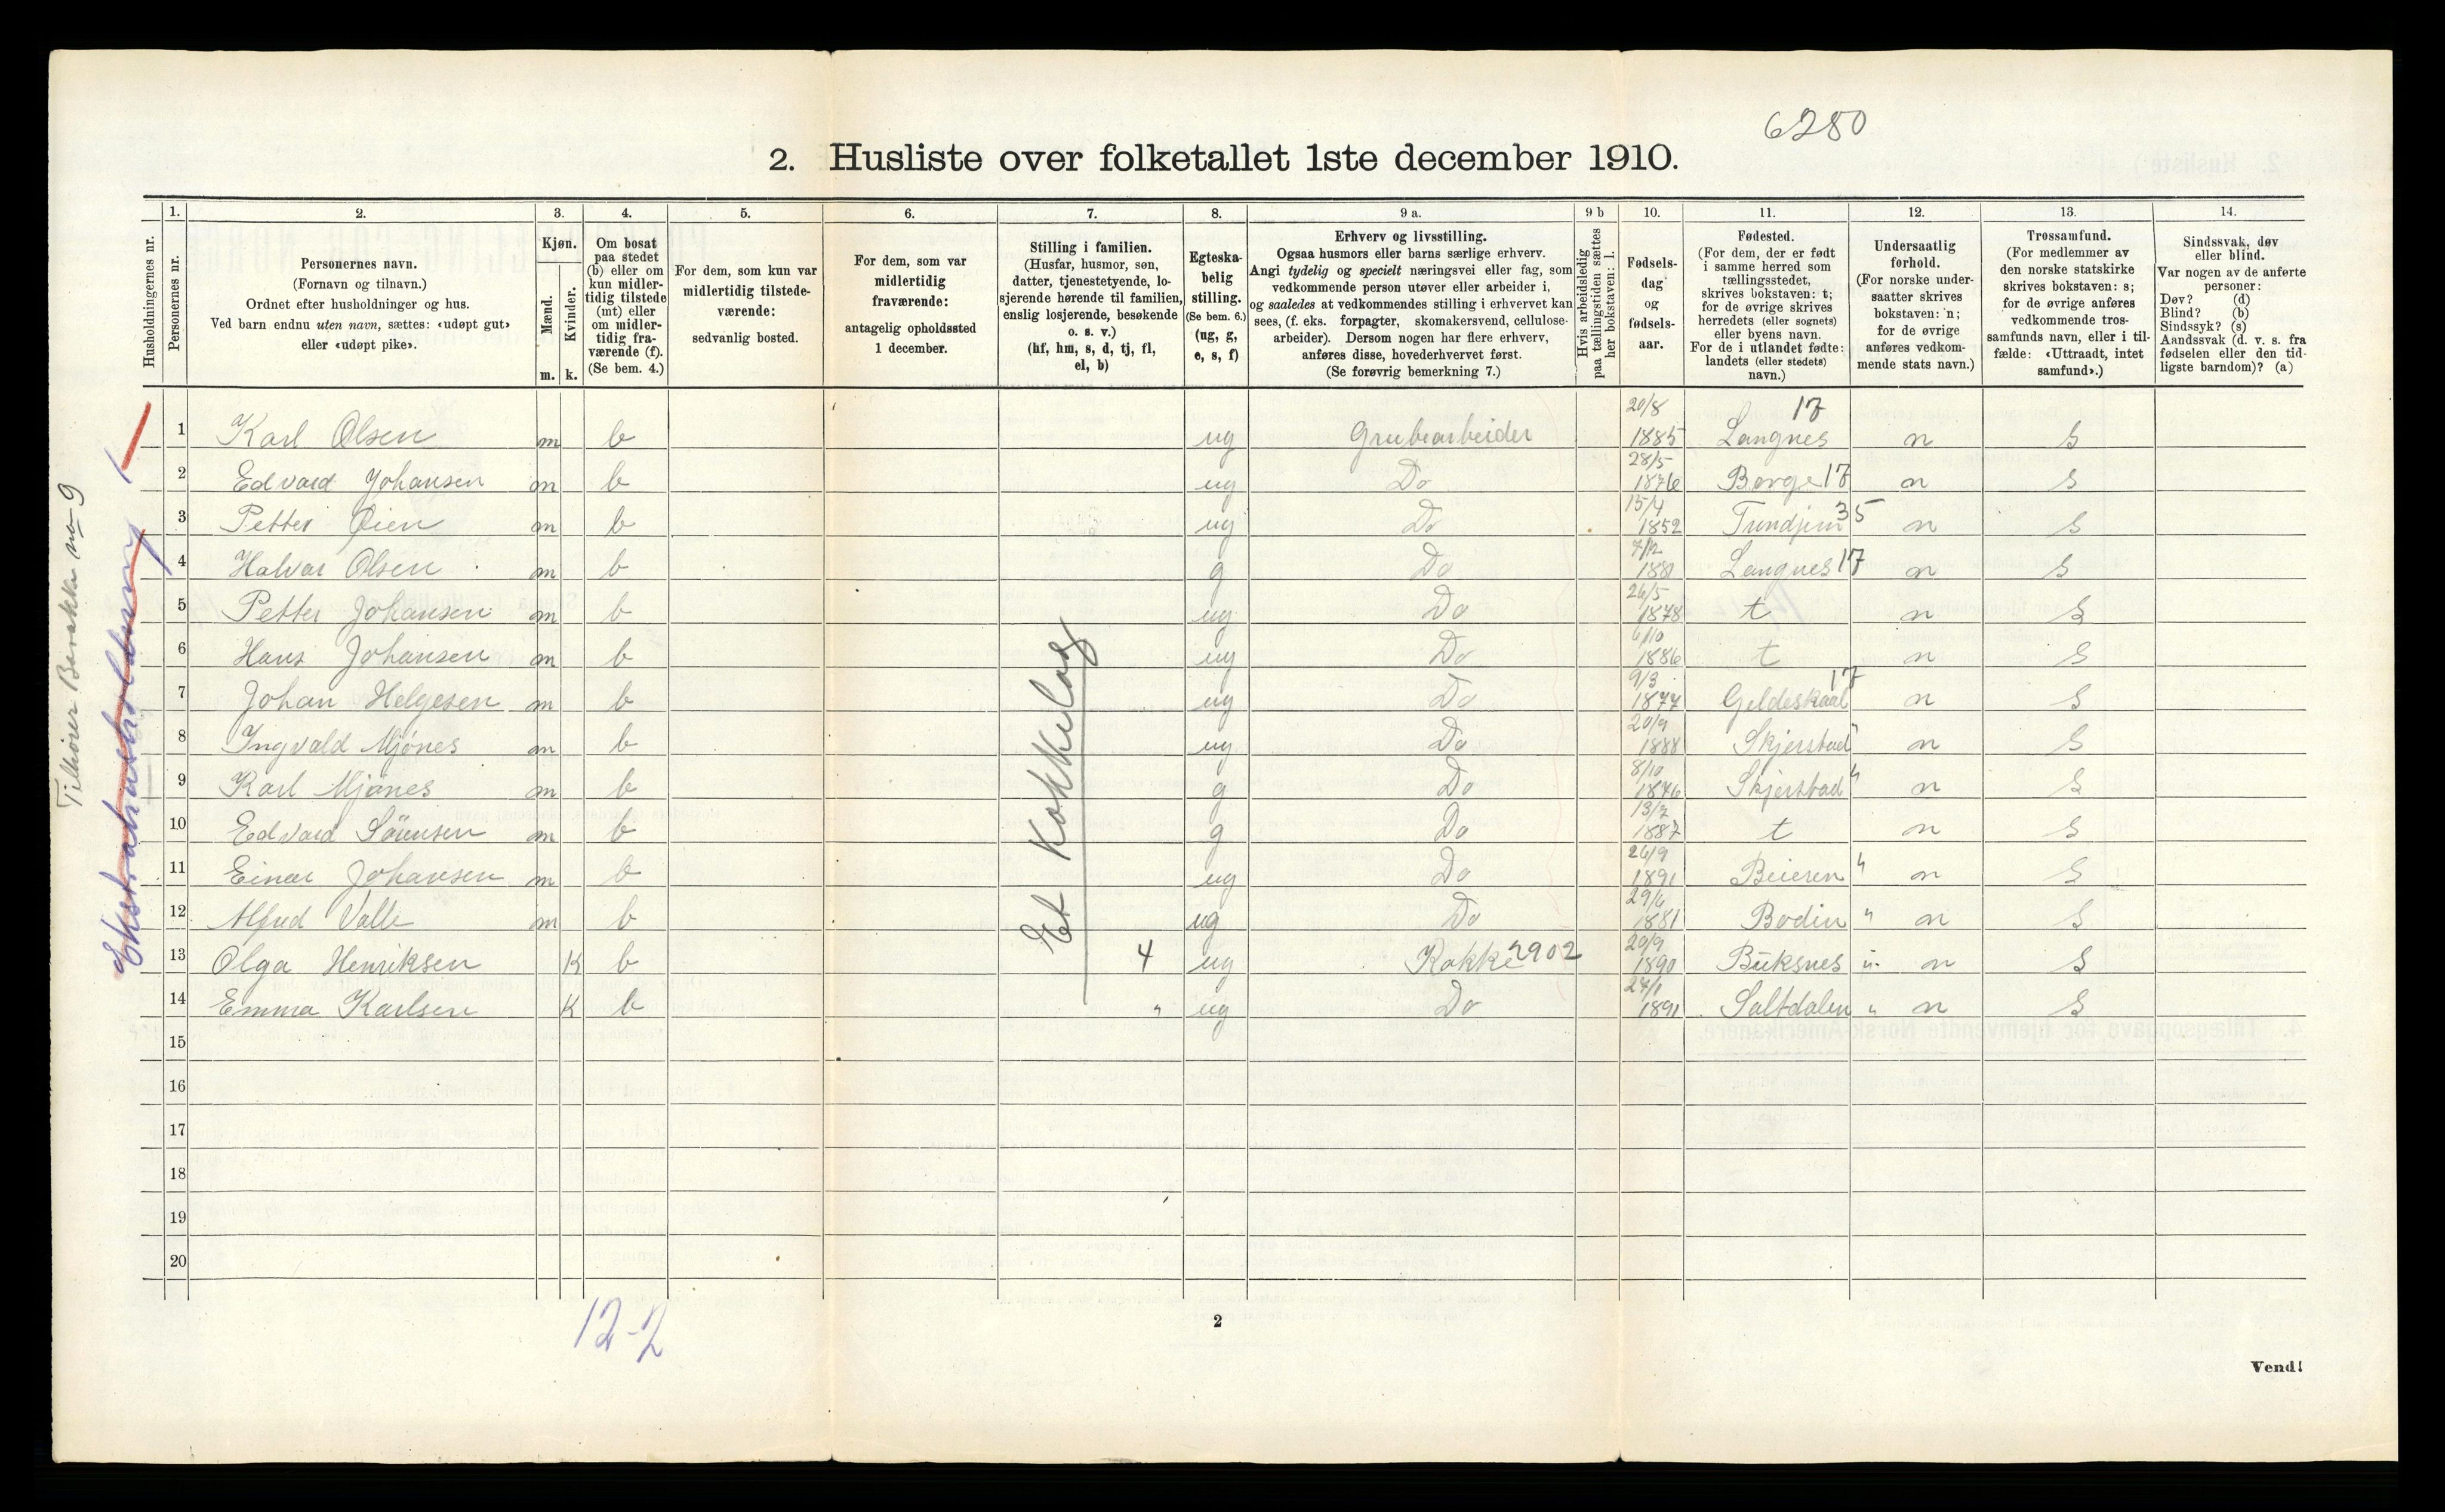 6280
2. Husliste over folketallet 1ste december 1910.
Husholdningernes nr.
1.
Personernes nr.
2.
Personernes navn.
(Fornavn og tilnavn.)
Ordnet efter husholdninger og hus.
Ved barn endnu uten navn, sættes: «udøpt gut»
eller «udøpt pike».
3.
Kjøn.
Mænd.
Kvinder.
m. k.
4.
Om bosat
paa stedet
(b) eller om
kun midler-
tidig tilstede
(mt) eller
om midler-
tidig fra-
værende (f).
(Se bem. 4.)
5.
For dem, som kun var
midlertidig tilstede-
værende:
sedvanlig bosted.
6.
For dem, som var
midlertidig
fraværende:
antagelig opholdssted
1 december.
7.
Stilling i familien.
(Husfar, husmor, søn,
datter, tjenestetyende, lo-
sjerende hørende til familien,
enslig losjerende, besøkende
o. s. v.)
(hf, hm, s, d, tj, fl,
el, b)
8.
Egteska-
belig
stilling.
(Se bem. 6.)
(ug, g,
e, s, f)
9 a.
Erhverv og livsstilling.
Ogsaa husmors eller barns særlige erhverv.
Angi tydelig og specielt næringsvei eller fag, som
vedkommende person utøver eller arbeider i,
og saaledes at vedkommendes stilling i erhvervet kan
sees, (f. eks. forpagter, skomakersvend, cellulose-
arbeider). Dersom nogen har flere erhverv,
anføres disse, hovederhvervet først.
(Se forøvrig bemerkning 7.)
9 b
Hvis arbeidsledig
paa tællingstiden sættes
her bokstaven: l.
10.
Fødsels-
dag
og
fødsels-
aar.
11.
Fødested.
(For dem, der er født
i samme herred som
tællingsstedet,
skrives bokstaven: t;
for de øvrige skrives
herredets (eller sognets)
eller byens navn.
For de i utlandet fødte:
landets (eller stedets)
navn.)
12.
Undersaatlig
forhold.
(For norske under-
saatter skrives
bokstaven: n;
for de øvrige
anføres vedkom-
mende stats navn.)
13.
Trossamfund.
(For medlemmer av
den norske statskirke
skrives bokstaven: s;
for de øvrige anføres
vedkommende tros-
samfunds navn, eller i til-
fælde: «Uttraadt, intet
samfund».)
14.
Sindssvak, døv
eller blind.
Var nogen av de anførte
personer:
Døv? (d)
Blind? (b)
Sindssyk? (s)
Aandssvak (d. v. s. fra
fødselen eller den tid-
ligste barndom)? (a)
Tilhører Barakke no 9
Ekstrahusholdning
Et Kokkelag
1 Karl Olsen m b ug Grubearbeider 20/8 1885 Langnes 17 n S
2 Edvard Johansen m b ug Do 28/5 1876 Borge 17 n S
3 Petter Øien m b ug Do 15/4 1852 Trondjem 35 n S
4 Halvar Olsen m b g Do 7/12 1881 Langnes 17 n S
5 Petter Johansen m b ug Do 26/5 1878 t n S
6 Hans Johansen m b ug Do 6/10 1886 t n S
7 Johan Helgesen m b ug Do 9/3 1877 Gildeskaal 17 n S
8 Ingvald Mjónes m b ug Do 20/9 1888 Skjerstad " n S
9 Karl Mjónes m b g Do 8/10 1876 Skjerstad " n S
10 Edvard Sörensen m b g Do 13/7 1887 t n S
11 Einar Johansen m b ug Do 26/9 1891 Beieren " n S
12 Alfred Valle m b ug Do 29/6 1881 Bodin " n S
13 Olga Henriksen K b 4 ug Kokke 2902 20/9 1890 Buksnes " n S
14 Emma Karlsen K b " ug Do 24/1 1891 Saltdalen " n S
15
16
17
18
19
20
12-2
2
Vend!